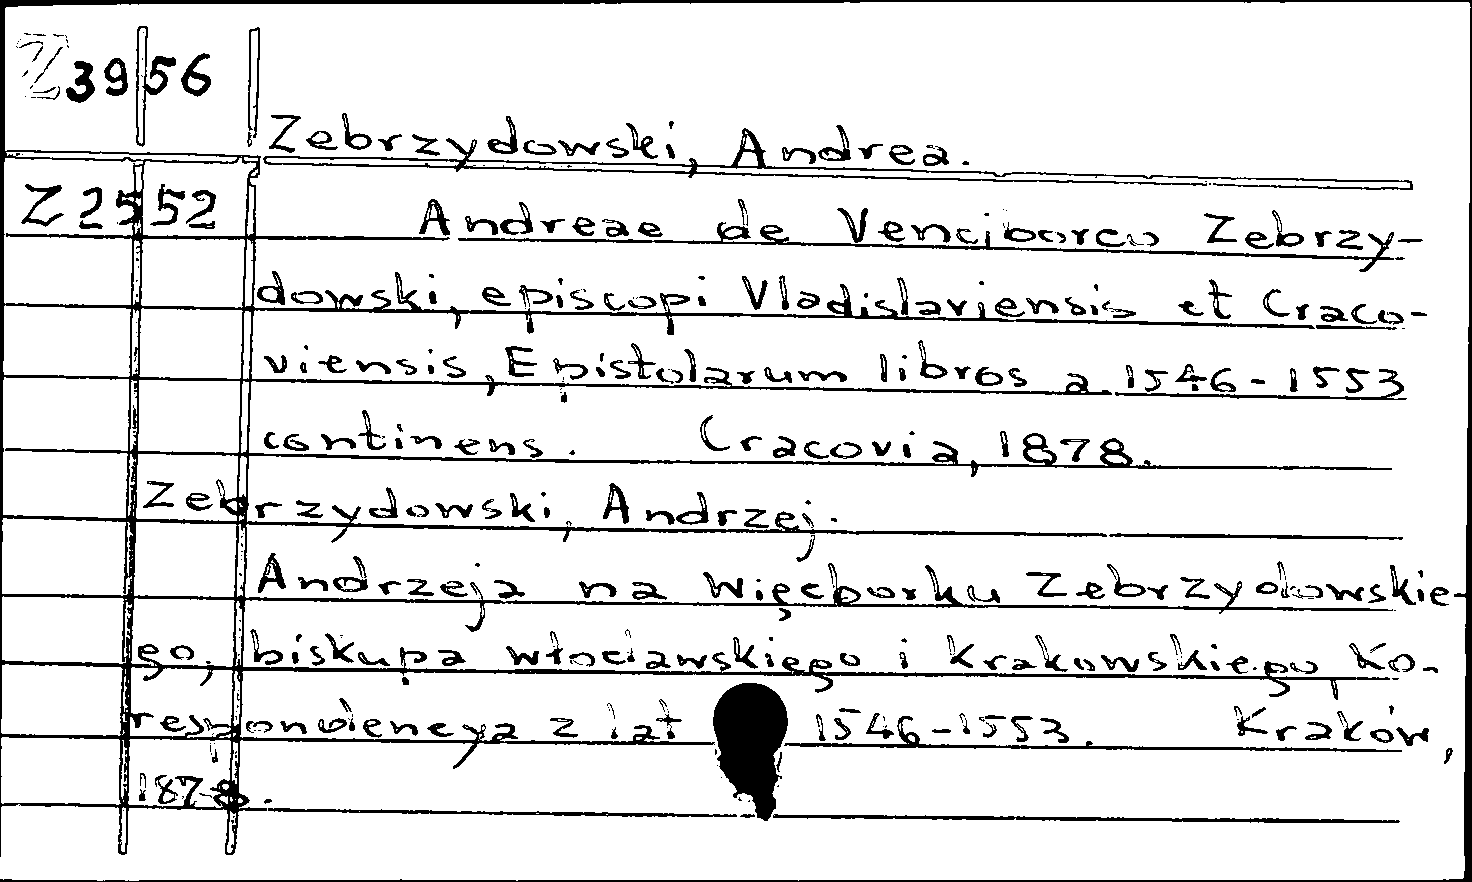 Z3956
Zebrzydowski, Andrea.
Z2552
Andreae de Venciborco Zebrzy-
dowski, episcopi Vladislaviensis et Craco-
viensis, Epistolarum libros a. 1546-1553
continens. Cracovia, 1878.
Zebrzydowski, Andrzej.
Andrzeja na Więcborku Zebrzydowskie-
go, biskupa włocławskiego i Krakowskiego, Ko-
respondencya z lat 1546-1553. Kraków,
1878.